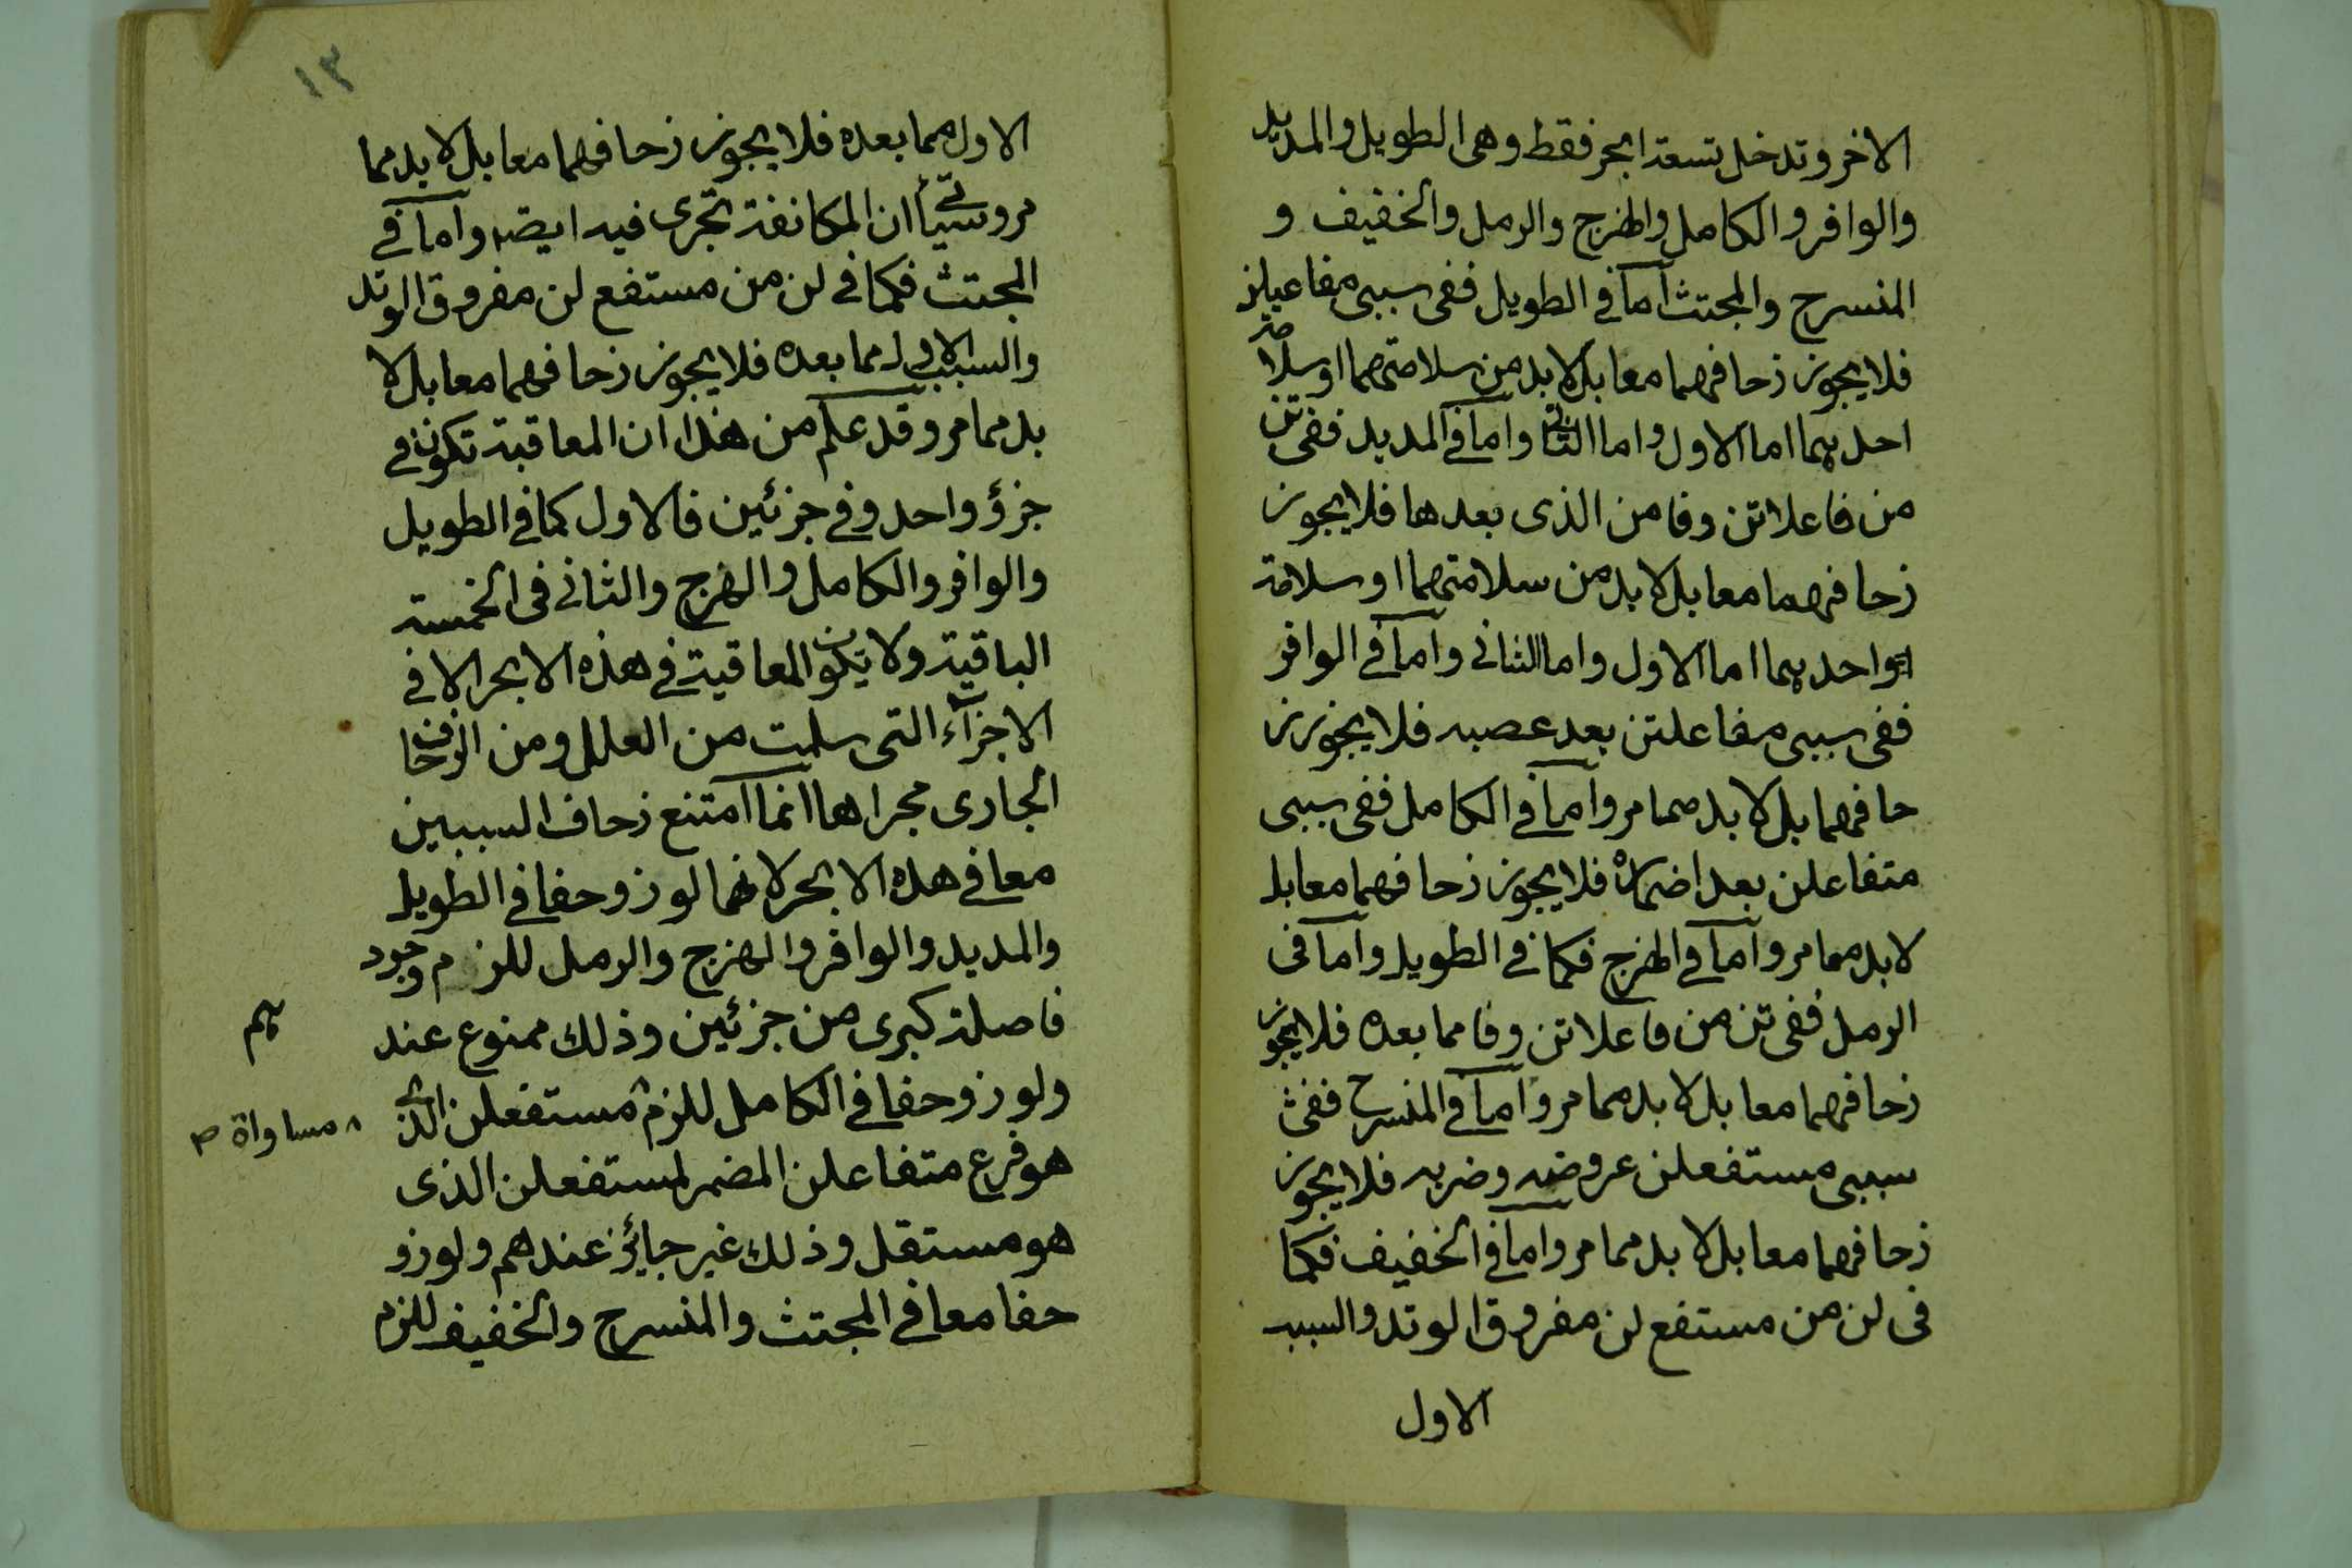 الاخر وتدخل تسعة ابحر فقط وهى الطويل والمديد
والوافر والكامل والهزج والرمل والخفيف و
المنسرح والمجتث اما فى الطويل ففى سببى مفاعيلن
فلا يجوز زحافهما معا بل لا بد من سلامتهما او سلامة
احديهما اما الاول واما الثانى واما فى المديد ففى تن
من فاعلاتن وفا من الذى بعدها فلا يجوز
زحافهما معا بل لا بد من سلامتهما او سلامة
احديهما اما الاول واما الثانى واما فى الوافر
ففى سببى مفاعلتن بعد عصبه فلا يجوز ز
حافهما بل لا بد مما مر واما فى الكامل ففى سببى
متفاعلن بعد اضماره فلا يجوز زحافهما معا بل
لا بد مما مر واما فى الهزج فكما فى الطويل واما فى
الرمل ففى تن من فاعلاتن وفا مما بعده فلا يجوز
زحافهما معا بل لا بد مما مر واما فى المنسرح ففى
سببى مستفعلن عروضه وضربه فلا يجوز
زحافهما معا بل لا بد مما مر واما فى الخفيف فكما
فى لن من مستفع لن مفروق الوتد والسبب
الاول
١٣
الاول مما بعده فلا يجوز زحافهما معا بل لا بد مما
مر وسيأتى ان المكانفة تجرى فيه ايضه واما فى
المجتث فكما فى لن من مستفع لن مفروق الوتد
والسبب الاول مما بعده فلا يجوز زحافهما معا بل لا
بد مما مر وقد علم من هذا ان المعاقبة تكون فى
جزؤ واحد وفى جزئين فالاول كما فى الطويل
والوافر والكامل والهزج والثانى فى الخمسة
الباقية ولا يكون المعاقبة فى هذه الابحر الا فى
الاجزآء التى سلمت من العلل ومن الزحاف
الجارى مجراها انما امتنع زحاف السببين
معا فى هذه الابحر لانهما لو زوحفا فى الطويل
والمديد والوافر والهزج والرمل للزم وجود
فاصلة كبرى من جزئين وذلك ممنوع عند
هم
ولو زوحفا فى الكامل للزم مستفعلن الذى
مساواة ص
هو فرع متفاعلن المضمر لمستفعلن الذى
هو مستقل وذلك غير جائز عندهم ولو زو
حفا معا فى المجتث والمنسرح والخفيف للزم